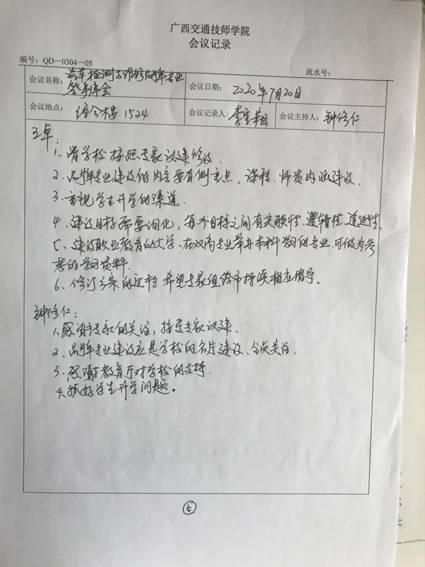 广西交通技师学院
会议记录
编号：QD—0304—05 流水号：
会议名称：汽车检测与维修品牌专业
会议日期：2020年7月20日
会议地点：综合楼1524 会议记录人： 会议主持人：钟修仁
王卓：
1、骨学校按照专家议建修改.
2、品牌专业建设的内容要有侧重点，课程、师资内涵建设.
3、重视学生升学的渠道.
4、建设目标需要细化，每个目标之间有关联性、逻辑性、递进性.
5、建设职业教育的大学、在双高专业举办本科类的专业，可做为参
考的资料.
6、修订方案的过程希望专家组给予持续相应指导.
钟修仁：
1、感谢专家的关注，接受专家议建.
2、品牌专业建设应是学校的名片建设、全员关注.
3、感谢教育厅对学校的支持.
4、抓好学生升学问题。
⑤